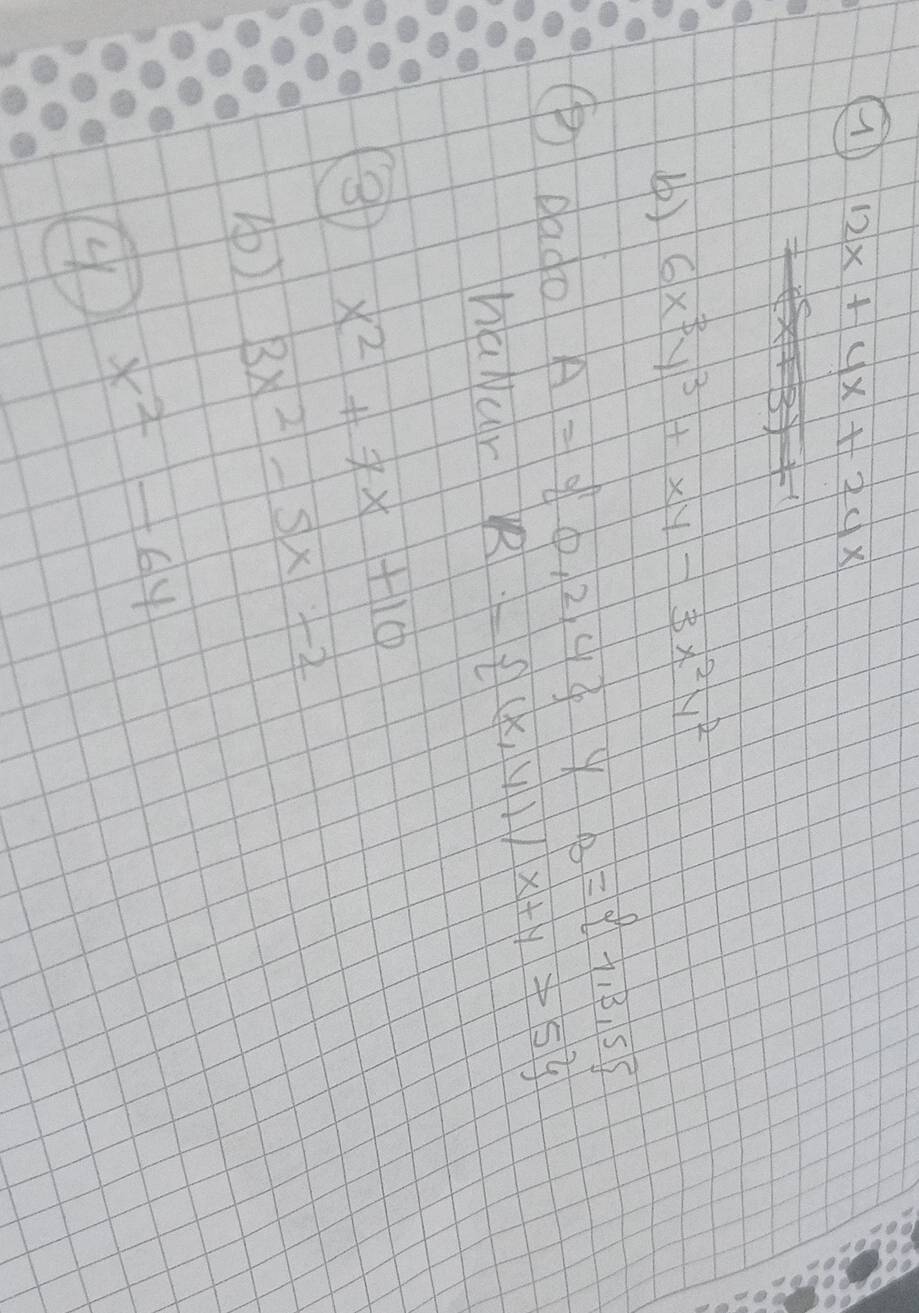 ① 12x + 4x + 24x
b) 6x³y³ + xy - 3x²y²
② Dado A = { 0,2,4} y B = { 1,3,5}
hallar R = {(x,y) / x+y > 5}
③ x² + 7x + 10
b) 3x² - 5x - 2
④ x² - 64